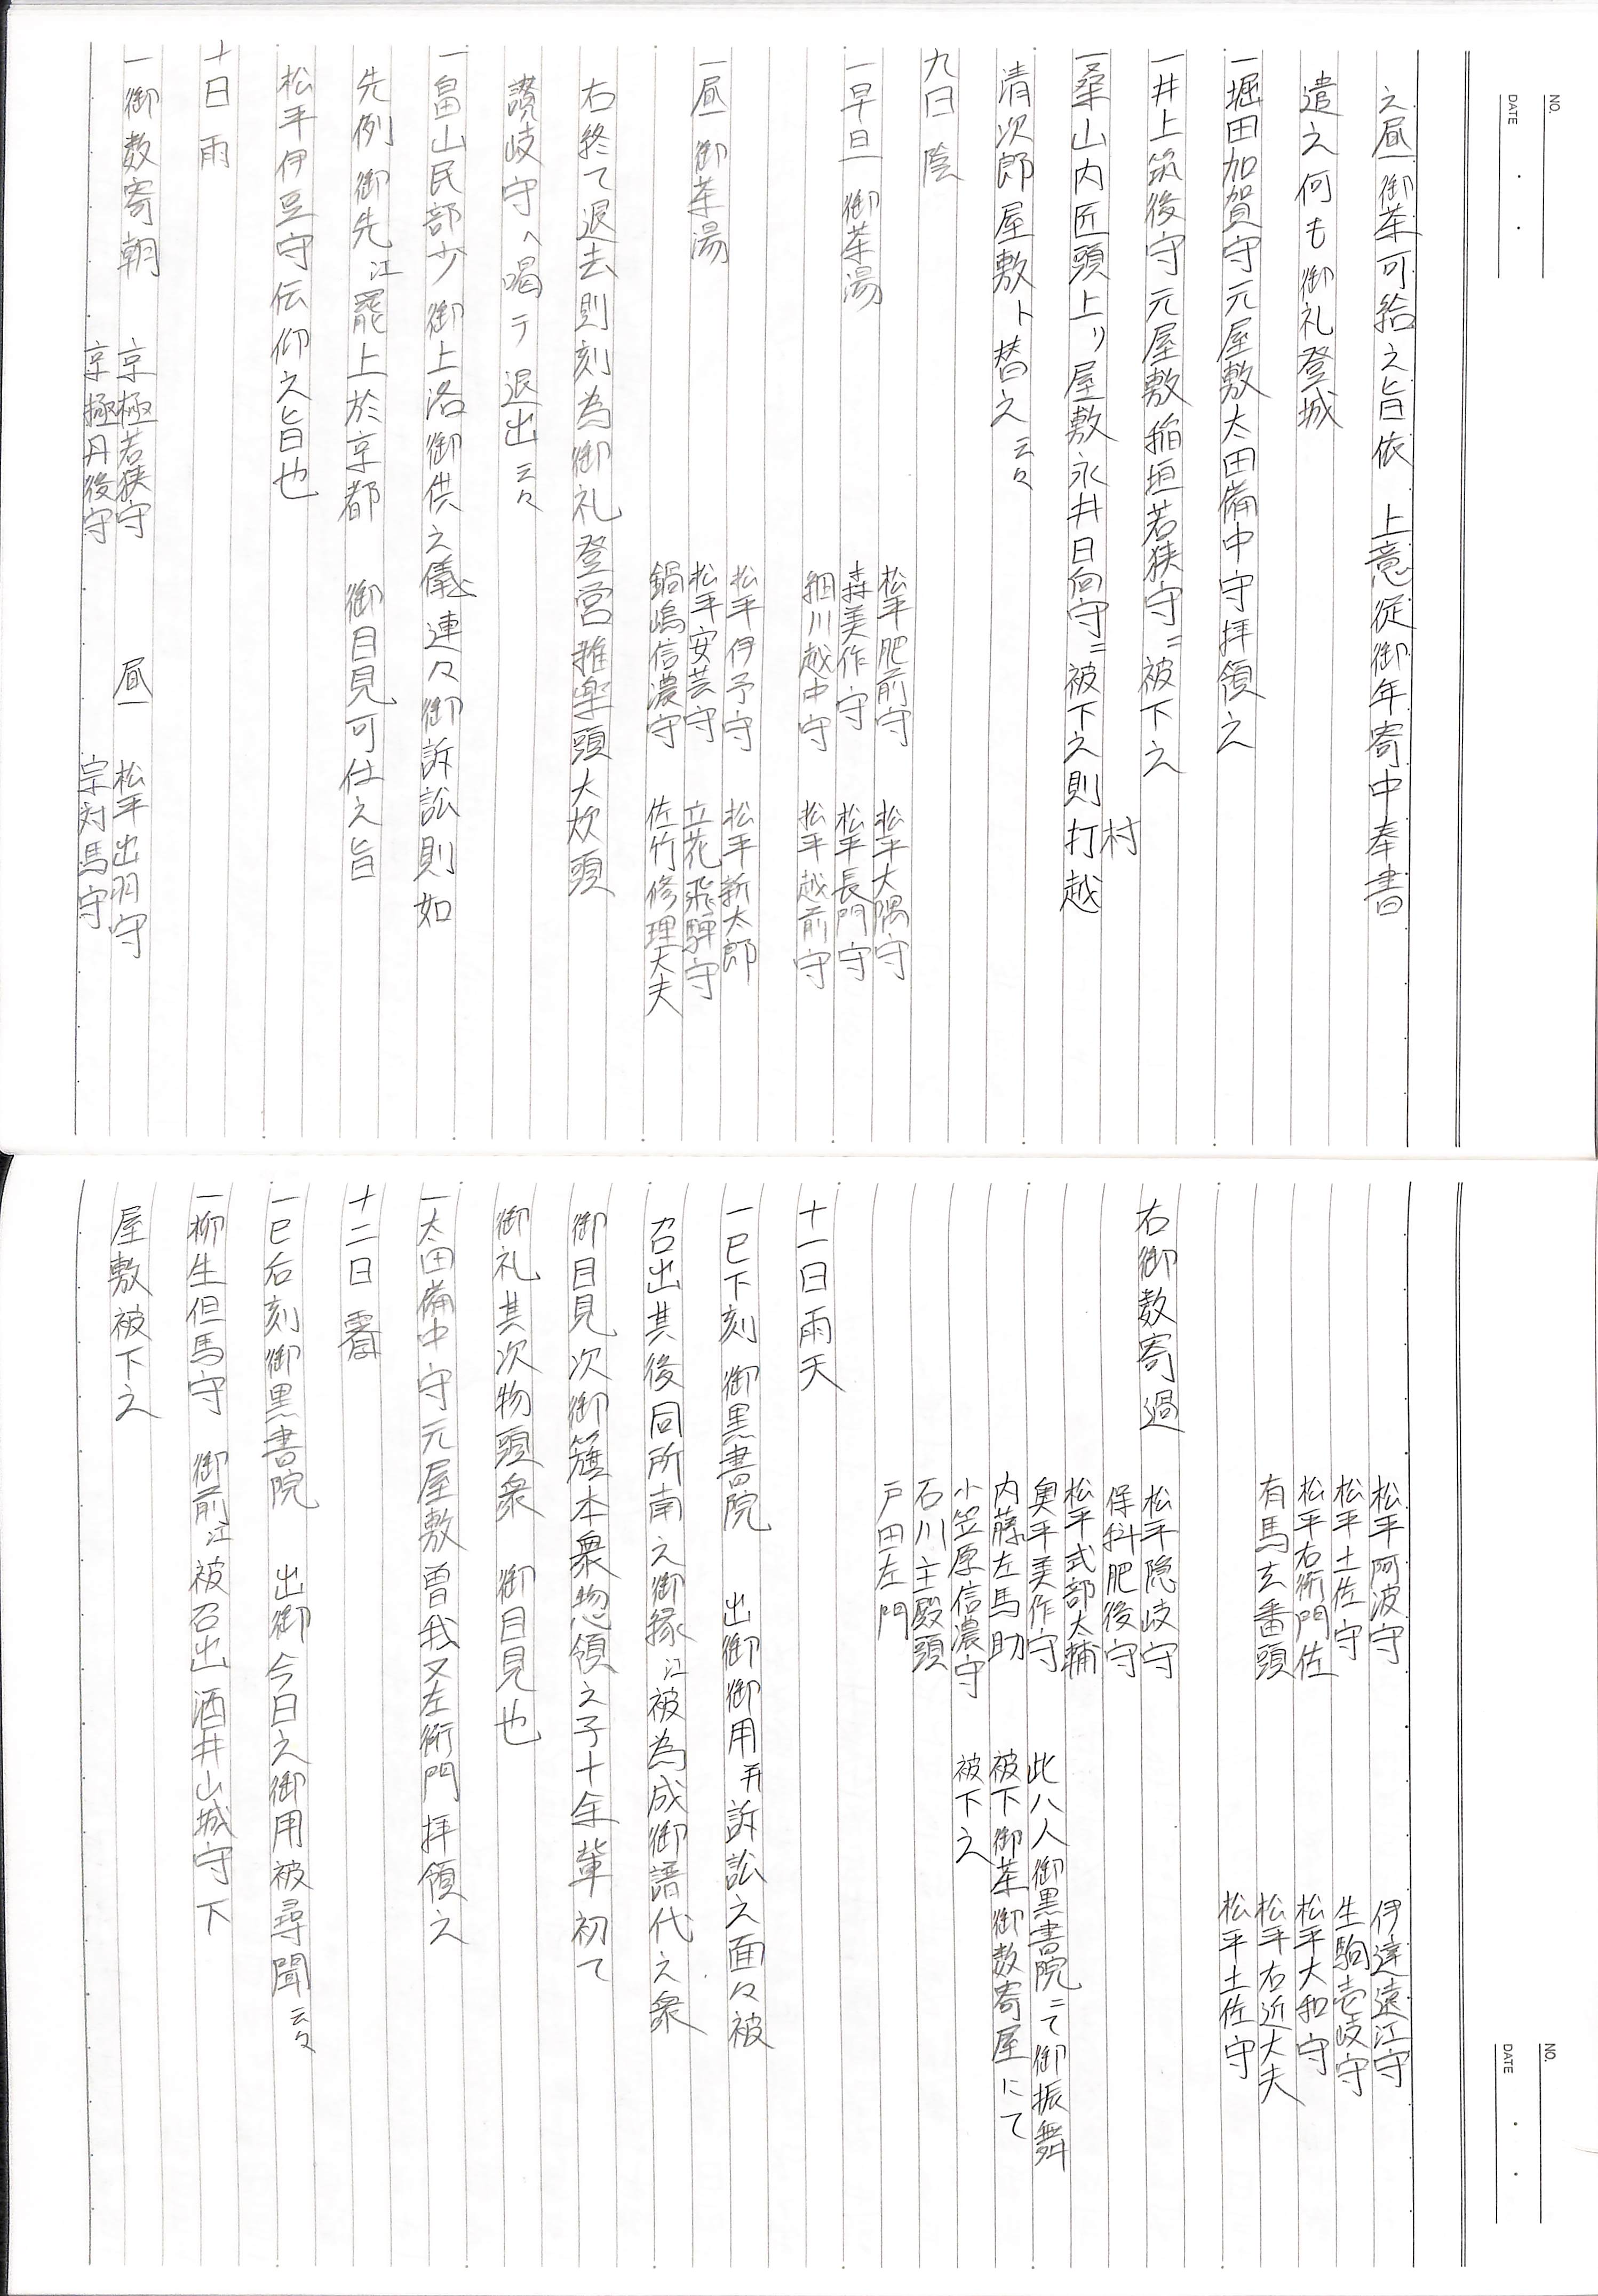 NO.
DATE
之昼御茶可給之旨依　上意従御年寄中奉書
遣之何も御礼登城
一堀田加賀守元屋敷太田備中守拝領之
一井上筑後守元屋敷稲垣若狭守ニ被下之
一桑山内匠頭上リ屋敷永井日向守ニ被下之則打越
村
清次郎屋敷ト替之云々
九日 陰
一早旦　御茶湯
松平肥前守　松平大隅守
森美作守　松平長門守
細川越中守　松平越前守
一昼　御茶湯
松平伊予守　松平新太郎
松平安芸守　立花飛騨守
鍋嶋信濃守　佐竹修理大夫
右終て退去則刻為御礼登営雅楽頭大炊頭
讃岐守へ喝テ退出云々
一畠山民部少御上洛御供之儀連々御訴訟則如
先例御先江罷上於京都　御目見可仕之旨
松平伊豆守伝仰之旨也
十日 雨
一御数寄朝　京極若狭守　昼　松平出羽守
京極丹後守　宗対馬守
NO.
DATE
松平阿波守　伊達遠江守
松平土佐守　生駒壱岐守
松平右衛門佐　松平大和守
有馬玄番頭　松平右近大夫
松平土佐守
右御数寄過
松平隠岐守
保科肥後守
松平式部太輔
奥平美作守　此八人御黒書院ニて御振舞
内藤左馬助　被下御茶御数寄屋にて
小笠原信濃守　被下之
石川主殿頭
戸田左門
十一日雨天
一巳下刻　御黒書院　出御御用并訴訟之面々被
召出其後同所南之御縁江被為成御譜代之衆
御目見次御籏本衆惣領之子十余輩初て
御礼其次物頭衆　御目見也
一太田備中守元屋敷曽我又左衛門拝領之
十二日 霽
一巳后刻御黒書院　出御今日之御用被尋聞云々
一柳生但馬守　御前江被召出酒井山城守下
屋敷被下之